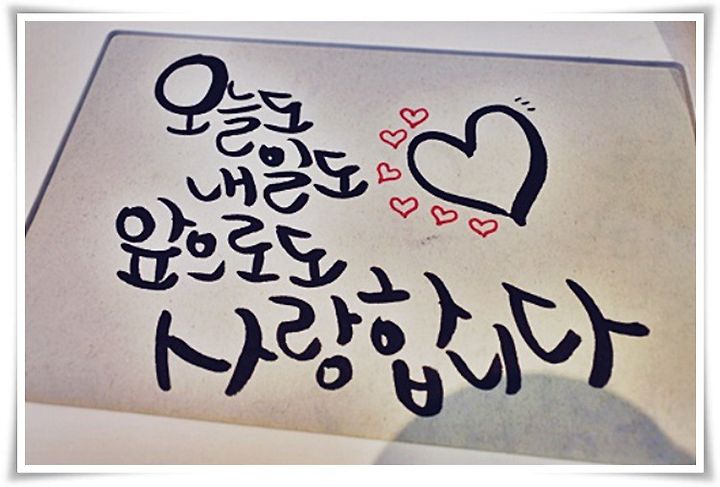 오늘도
내일도
앞으로도
사랑합니다